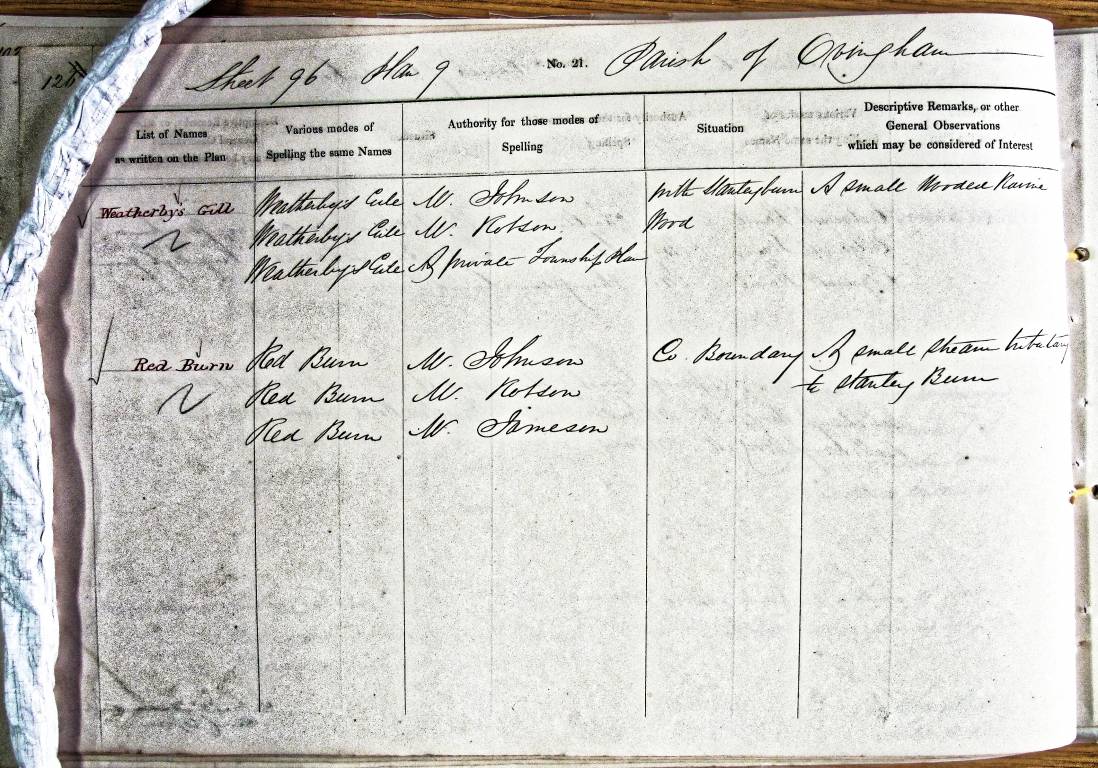 Sheet 96 Plan 9 No. 21. Parish of Ovingham
List of Names
as written on the Plan
Various modes of
Spelling the same Names
Authority for those modes of
Spelling
Situation
Descriptive Remarks, or other
General Observations
which may be considered of Interest
Weatherby's Gill Weatherby's Gile W. Johnson With Stanleyburn A small Wooded Ravine
Weatherby's Gile W. Robson Wood
Weatherby's Gile A private Township Plan
Red Burn Red Burn W. Johnson Co. Boundary A small stream tributary
Red Burn W. Robson to Stanley Burn
Red Burn W. Jameson